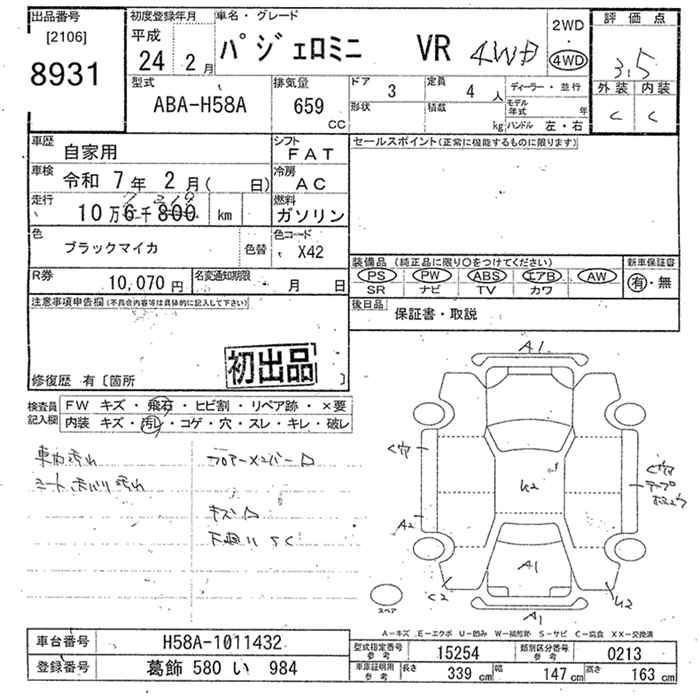 出品番号 初度登録年月 車名・グレード 評価点
[2106] 平成 2WD
8931 24 年 2 月 パジェロミニ VR 4WD ・ 4WD 3.5
型式 排気量 ドア 3 定員 4 人 ディーラー・並行 外装 内装
ABA-H58A 659 CC 形状 積載 kg モデル年式 年 C C
ハンドル 左・右
車歴 自家用 シフト FAT セールスポイント(正常に機能するものに限ります)
車検 令和 7 年 2 月 ( 日) 冷房 AC
走行 10 万 6 千 800 km 燃料 ガソリン
色 ブラックマイカ 色替 色コード X42
装備品 (純正品に限り○をつけてください) 新車保証書
PS PW ABS エアB AW 有・無
R券 10,070 円 名変通知期限 月 日 SR ナビ TV カワ
注意事項申告欄(不具合内容等は具体的に記入して下さい) 後日品 保証書・取説
初出品
修復歴 有 〔箇所 〕
A1
検査員記入欄 FW キズ・飛石・ヒビ割・リペア跡・×要
内装 キズ・汚レ・コゲ・穴・スレ・キレ・破レ
車内汚れ
シート
汚れ
キズ
A2
A1
スペア
A1
A-キズ E-エクボ U-凹み W-補修跡 S-サビ C-腐食 XX-交換済
車台番号 H58A-1011432 型式指定番号 参考 15254 類別区分番号 参考 0213
登録番号 葛飾 580 い 984 車庫証明用 参考 長さ 339 cm 幅 147 cm 高さ 163 cm